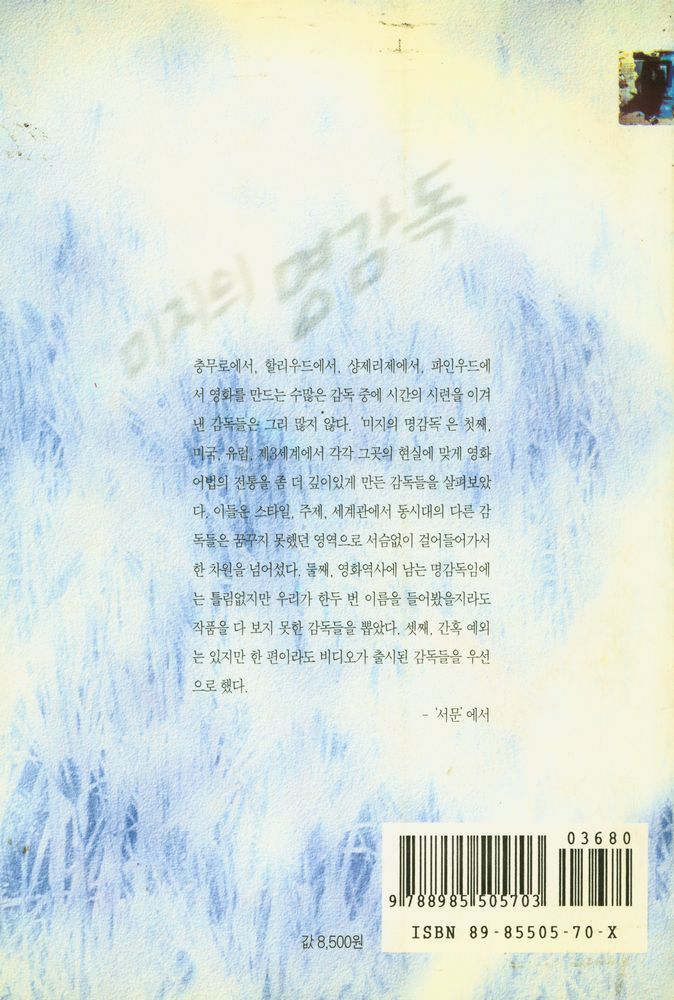 미지의 명감독
충무로에서, 할리우드에서, 샹제리제에서, 파인우드에
서 영화를 만드는 수많은 감독 중에 시간의 시련을 이겨
낸 감독들은 그리 많지 않다. '미지의 명감독'은 첫째,
미국, 유럽, 제3세계에서 각각 그곳의 현실에 맞게 영화
어법의 전통을 좀 더 깊이있게 만든 감독들을 살펴보았
다. 이들은 스타일, 주제, 세계관에서 동시대의 다른 감
독들은 꿈꾸지 못했던 영역으로 서슴없이 걸어들어가서
한 차원을 넘어섰다. 둘째, 영화역사에 남는 명감독임에
는 틀림없지만 우리가 한두 번 이름을 들어봤을지라도
작품을 다 보지 못한 감독들을 뽑았다. 셋째, 간혹 예외
는 있지만 한 편이라도 비디오가 출시된 감독들을 우선
으로 했다.
– '서문'에서
03680
9 788985 505703
ISBN 89-85505-70-X
값 8,500원